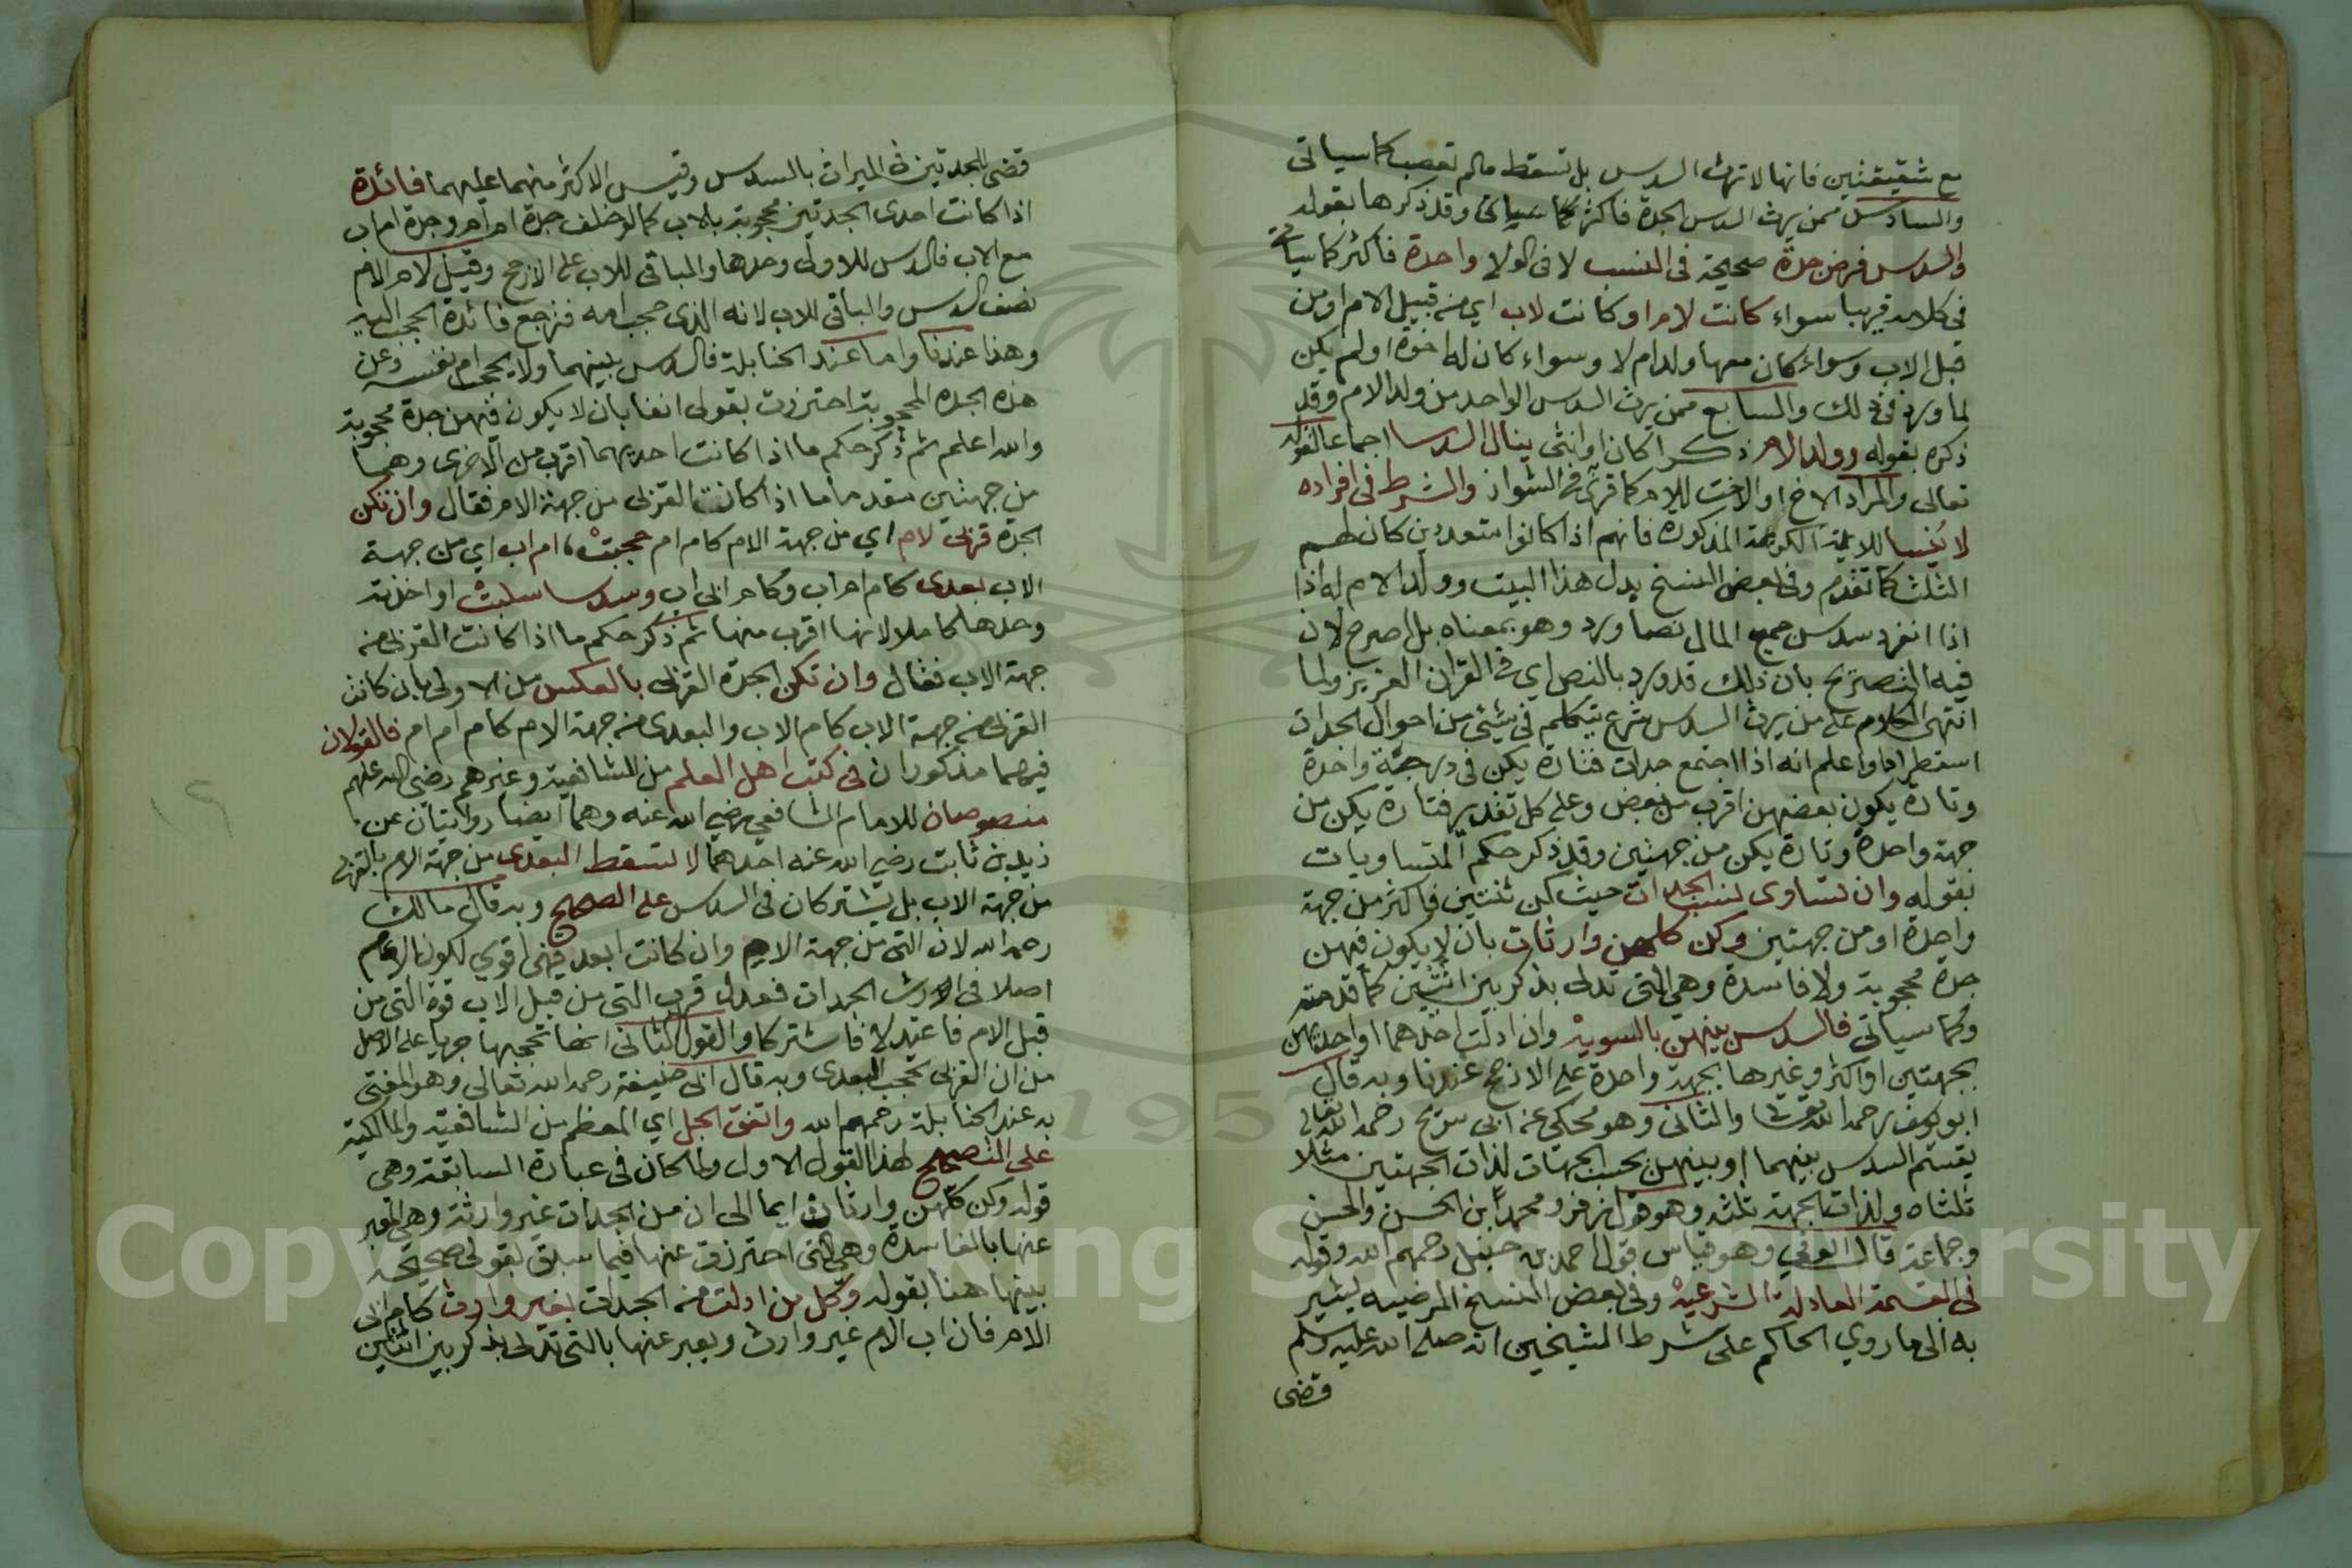 مع شقيقتين فانها لا ترث السدس بل تسقط مالم تعصب كما سياتى
والسادس ممن يرث السدس الجدة فاكثر كما سياتى وقد ذكرها بقوله
والسدس فرض جدة صحيحة فى النسب لا فى الولا واحدة فاكثر كما سياتى
فى كلامه قريبا سواء كانت لام او كانت لاب اي من قبيل الام او من
قبل الاب وسواء كان معها ولد ام لا وسواء كان له اخوة او لم يكن
لما ورد فى ذلك والسابع ممن يرث السدس الواحد من ولد الام وقد
ذكره بقوله وولد الام ذكرا كان او انثى ينال السدسا اجماعا لقوله
تعالى والمراد الاخ او الاخت للام كما قرئ فى الشواذ والشرط فى افراده
لا ينسا للاية الكريمة المذكورة فانهم اذا كانوا متعددين كان لهم
الثلث كما تقدم وفى بعض النسخ بدل هذا البيت وولد الام له اذا
اذا انفرد سدس جميع المال نصا ورد وهو بمعناه بل اصرح لان
فيه التصريح بان ذلك قد ورد بالنص اي فى القران العزيز ولما
انتهى الكلام على من يرث السدس شرع يتكلم فى شيئ من احوال الجدات
استطرادا واعلم انه اذا اجتمع جدات فتارة يكن فى درجة واحدة
وتارة يكون بعضهن اقرب من بعض وعلى كل تقدير فتارة يكن من
جهة واحدة وتارة يكن من جهتين وقد ذكر حكم المتساويات
بقوله وان تساوى نسب الجدات حيث كن ثنتين فاكثر من جهة
واحدة او من جهتين وكن كلهن وارثات بان لا يكون فيهن
جدة محجوبة ولا فاسدة وهي التى تدلى بذكر بين انثيين كما قدمته
وكما سياتى فالسدس بينهن بالسوية وان ادلت احدهما او احداهن
بجهتين او اكثر وغيرها بجهة واحدة على الارجح عندنا وبه قال
ابو يوسف رحمه الله تعالى والثانى وهو محكي عن ابى سريج رحمه الله تعالى
يقسم السدس بينهما او بينهن بحسب الجهات لذات الجهتين مثلا
ثلثاه ولذات الجهة ثلثه وهو قول زفر ومحمد ابن الحسن والحسن
وجماعة قال الونى وهو قياس قول احمد بن حنبل رحمهم الله وقوله
فى القسمة العادلة الشرعية وفى بعض النسخ المرضيه يشير
به الى ما روي الحاكم على شرط الشيخين انه صلى الله عليه وسلم
قضى
قضى للجدتين فى الميراث بالسدس وقيس الاكثر منهما عليهما فائدة
اذا كانت احدى الجدتين محجوبة بالاب كما لو خلف جدة ام ام وجدة ام اب
مع الاب فالسدس للاولى وحدها والباقى للاب على الارجح وقيل لام الام
نصف السدس والباقى للاب لانه الذى حجب امه فترجع فائدة الحجب اليه
وهذا عندنا واما عند الحنابلة فالسدس بينهما ولا يحجب ام نفسه وعن
هذه الجدة المحجوبة احترزت بقولى انفا بان لا يكون فيهن جدة محجوبة
والله اعلم ثم ذكر حكم ما اذا كانت احديهما اقرب من الاخرى وهما
من جهتين مقدما ما اذا كانت القربى من جهة الام فقال وان تكن
الجدة قربى لام اي من جهة الام كام ام حجبت ام اب اي من جهة
الاب بعدى كام ام اب وكام ابى اب وسدسا سلبت او اخذته
وحدها كاملا لانها اقرب منها ثم ذكر حكم ما اذا كانت القربى من
جهة الاب فقال وان تكن الجدة القربى بالعكس من الاولى بان كانت
القربى من جهة الاب كام الاب والبعدى من جهة الام كام ام ام فالقولان
فيهما مذكوران فى كتب اهل العلم من الشافعية وغيرهم رضى الله عنهم
منصوصان للامام الشافعى رضي الله عنه وهما ايضا روايتان عن
زيد بن ثابت رضي الله عنه احدهما لا تسقط البعدى من جهة الام بالقربى
من جهة الاب بل يشتركان فى السدس على الصحيح وبه قال مالك
رحمه الله لان التى من جهة الام وان كانت ابعد فهي اقوي لكون الام
اصلا فى ارث الجدات فعدل قرب التى من قبل الاب قوة التى من
قبل الام فاعتدلا فاشتركا والقول الثانى انها تحجبها جريا على الاصل
من ان القربى تحجب البعدى وبه قال ابى حنيفة رحمه الله تعالى وهو المفتى
به عند الحنابلة رحمهم الله واتفق الجل اي المعظم من الشافعية والمالكية
على التصحيح لهذا القول الاول ولما كان فى عبارة السابقة وهى
قوله وكن كلهن وارثات ايما الى ان من الجدات غير وارثة وهى المعبر
عنها بالفاسدة وهي التى احترزت عنها فيما سبق بقولى صحيحة
بينها هنا بقوله وكل من ادلت من الجدات بغير وارث كام ابى
الام فان اب الام غير وارث ويعبر عنها بالتى تدلى بذكر بين انثيين
Copyright © King Saud University
1957